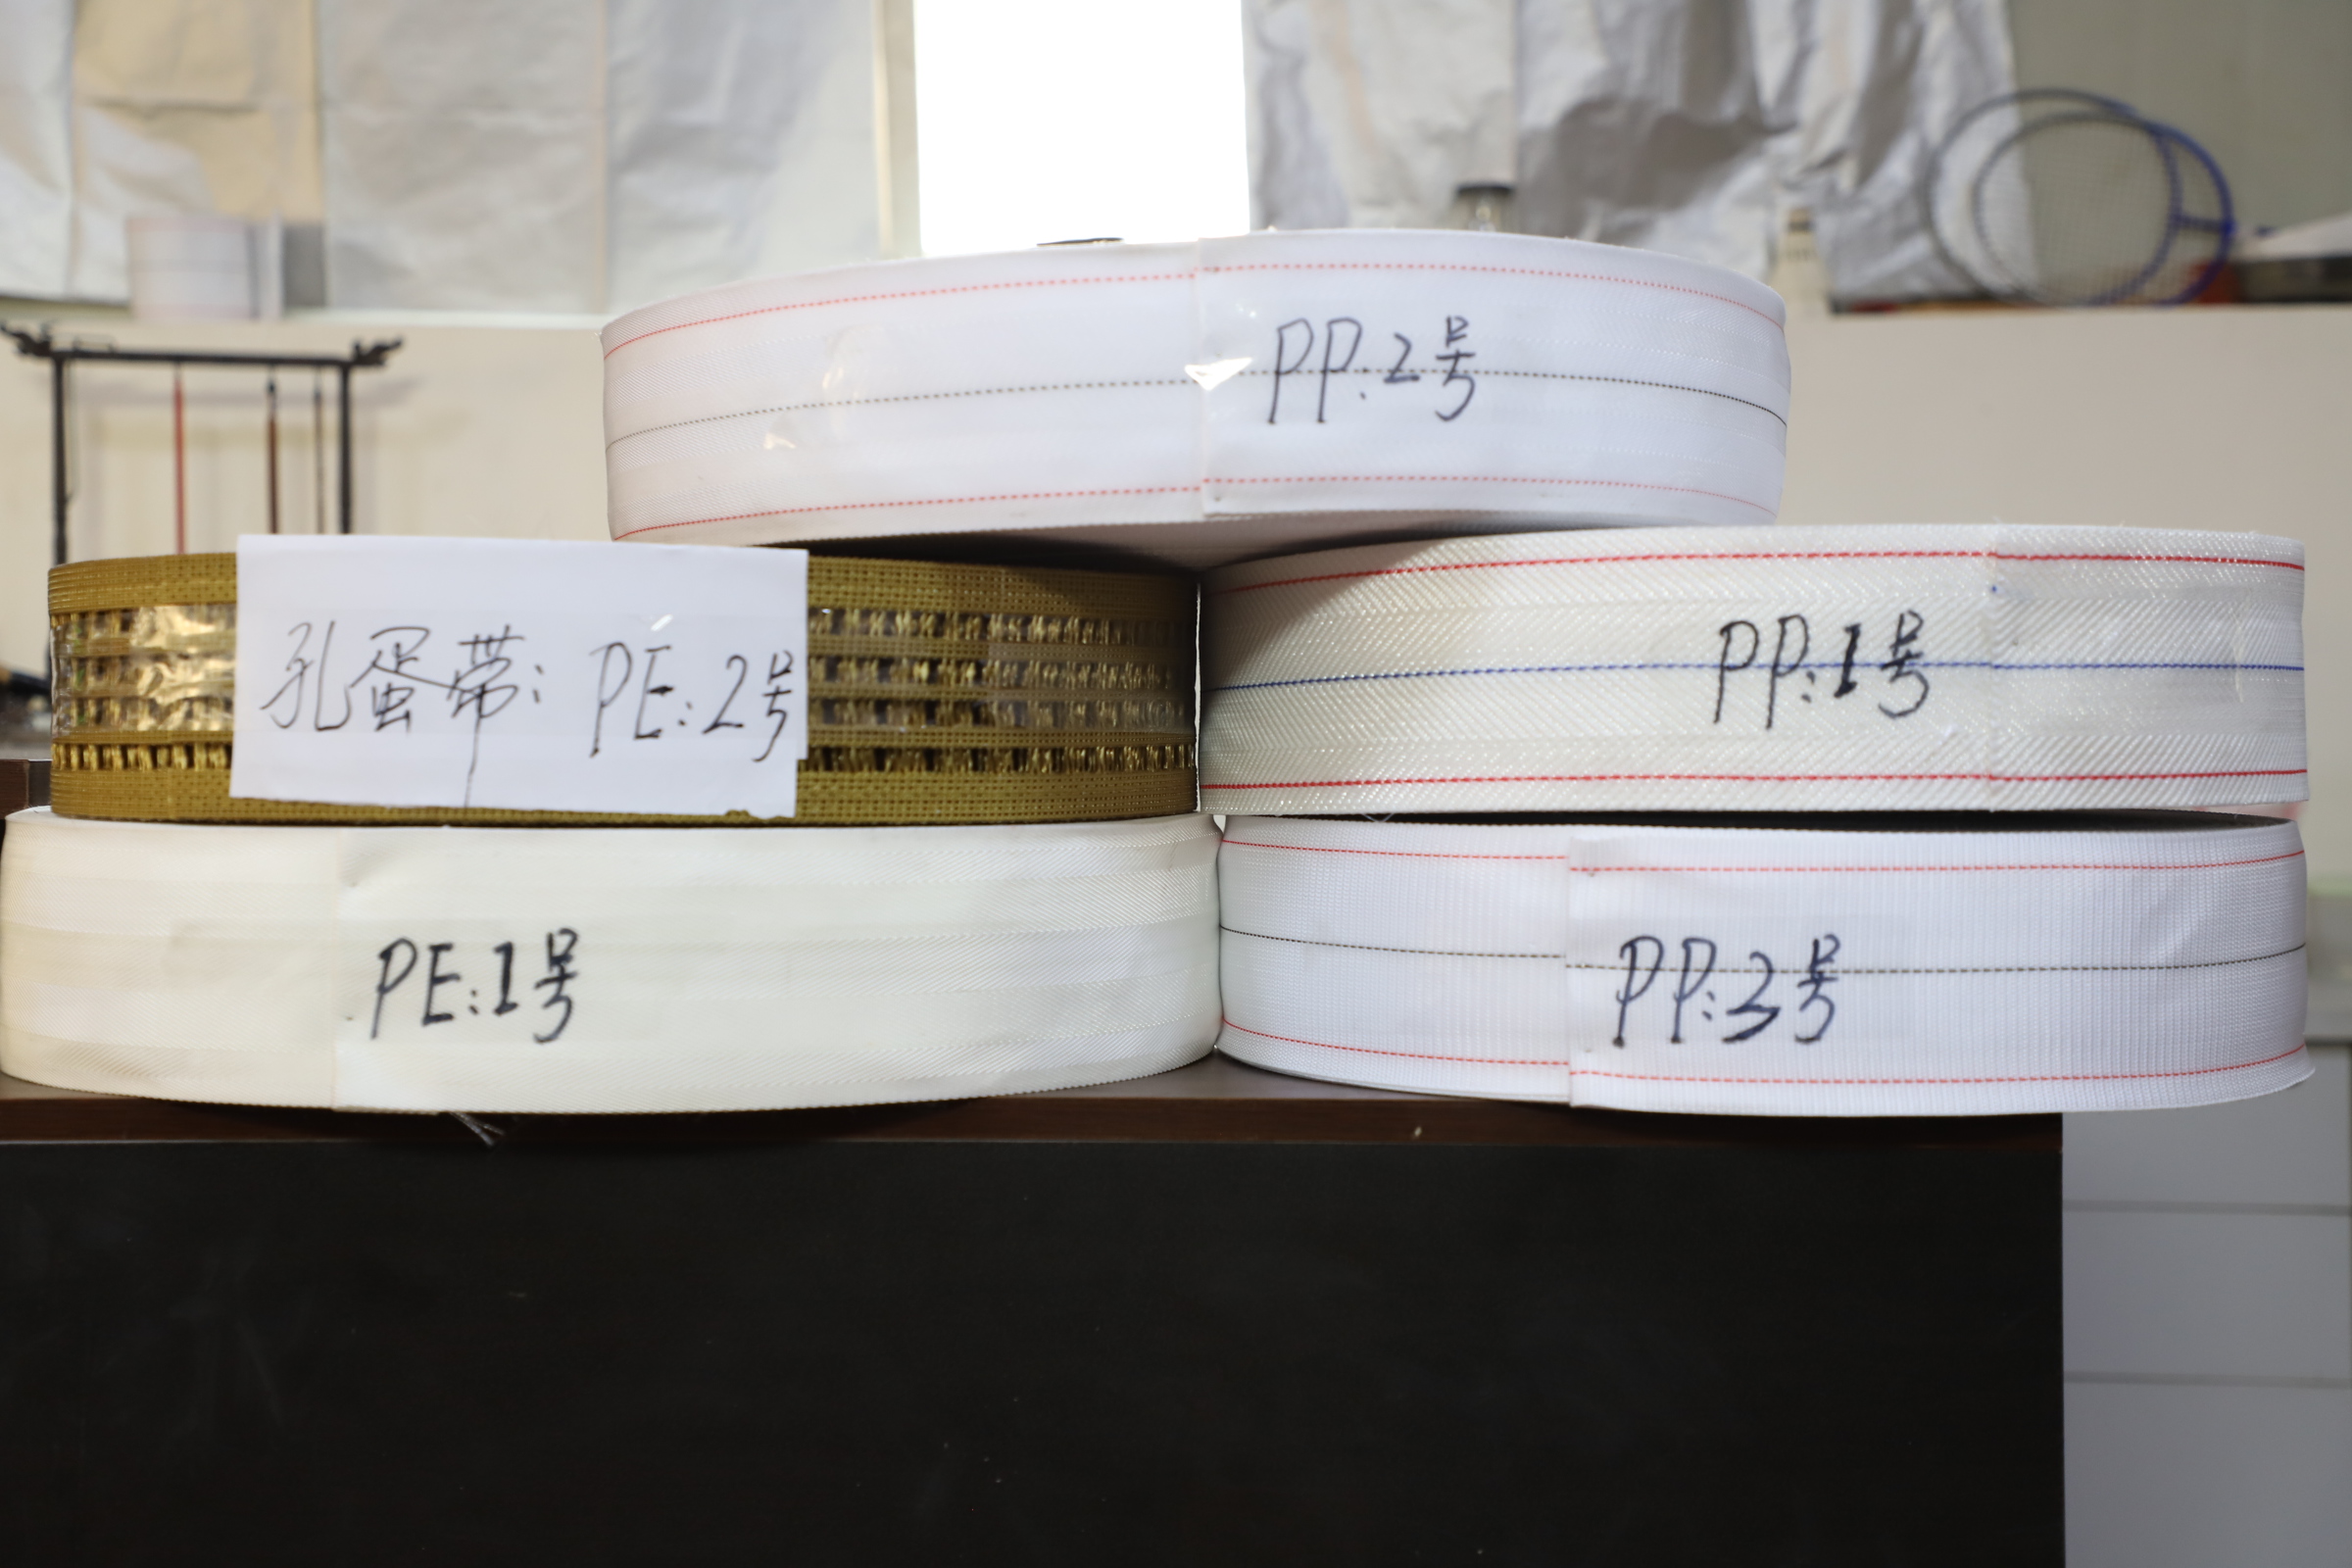 PP:2号
孔蛋带: PE:2号
PP:1号
PE:1号
PP:3号